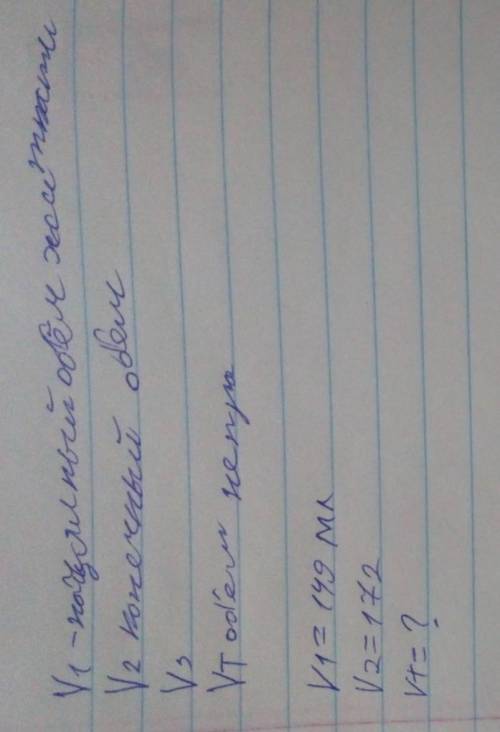 V1 - начальный объём жидкости
V2 конечный обем
V3
VT об'ем
V1 = 149 мл
V2 = 172
Vт = ?